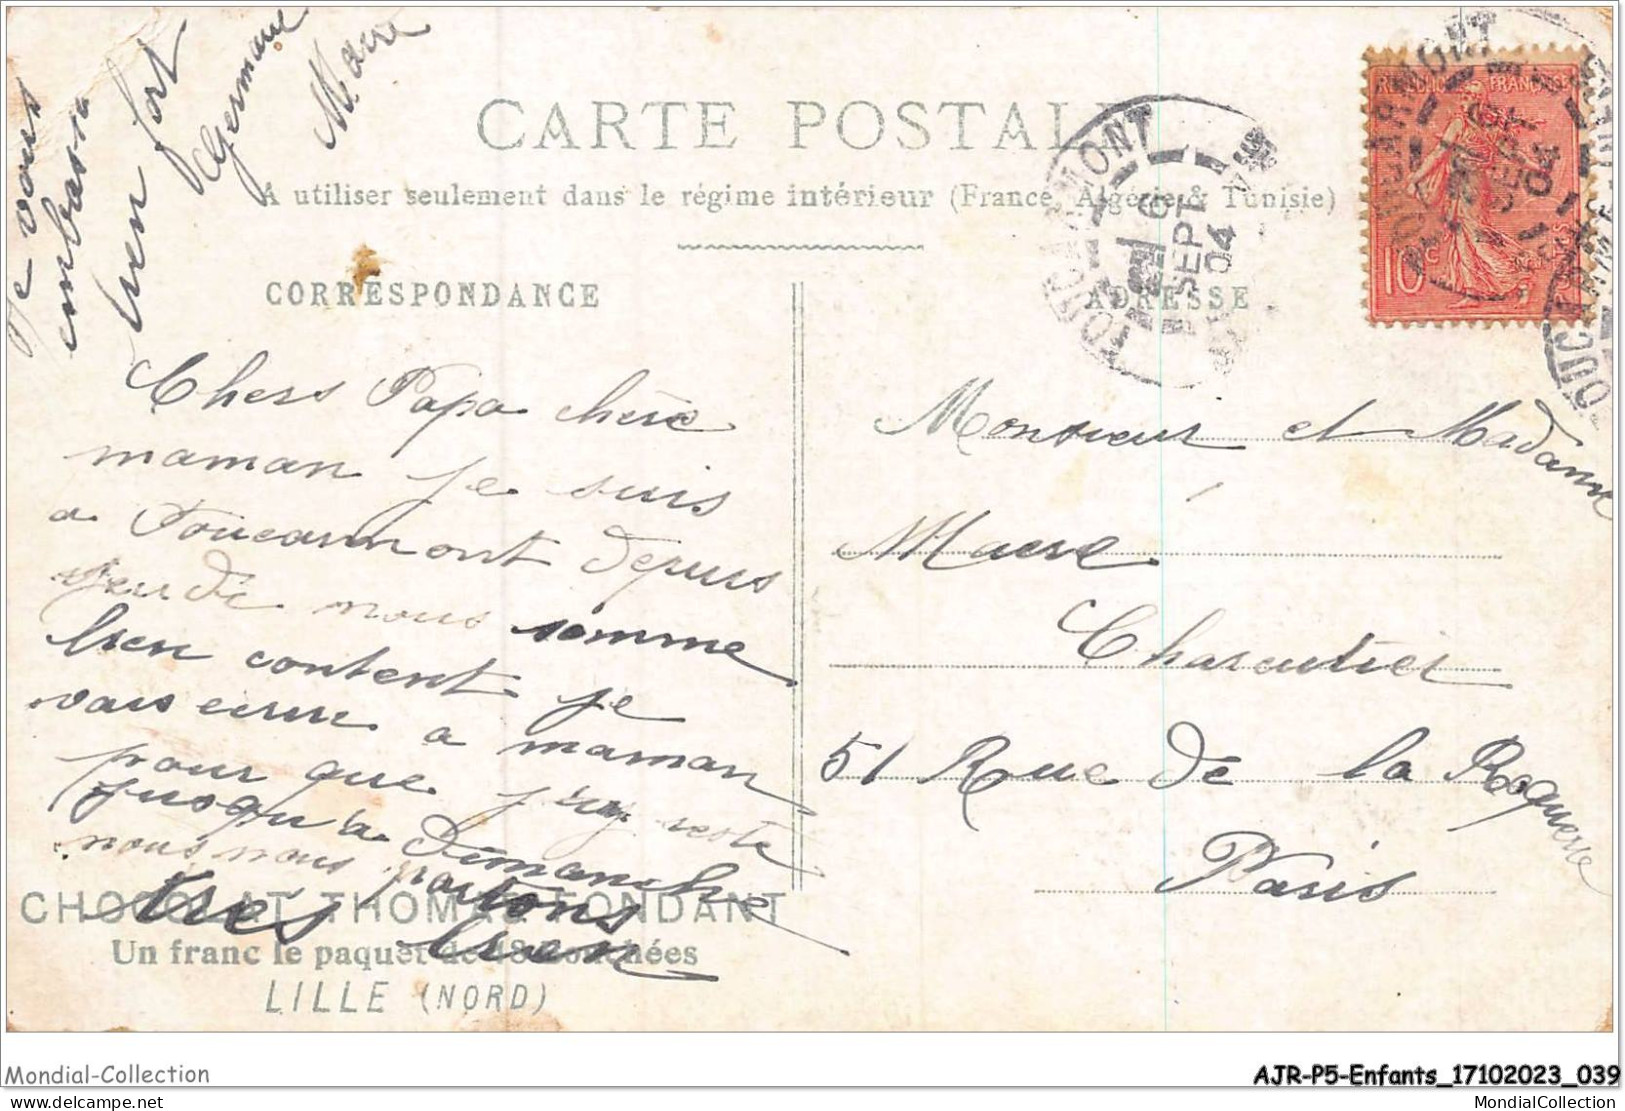 Je vous
embrasse
bien fort
Germaine
Macré
CARTE POSTALE
A utiliser seulement dans le régime intérieur (France, Algérie & Tunisie)
CORRESPONDANCE
ADRESSE
FOUCARMONT
6
SEPT
04
REPUBLIQUE FRANÇAISE
10 c
Chers Papa chère
maman je suis
a Foucarmont depuis
jeudi nous somme
bien content je
vais ecrire a maman
pour que j'
reste
jusqu'a Dimanche
nous nous nous portons
tres bien
CHOCOLAT THOMAS FONDANT
Un franc le paquet de 48 bouchées
LILLE (NORD)
Monsieur et Madame
Macré
Charcutier
51 Rue de la Roquette
Paris
Mondial-Collection
AJR-P5-Enfants_17102023_039
delcampe.net
MondialCollection